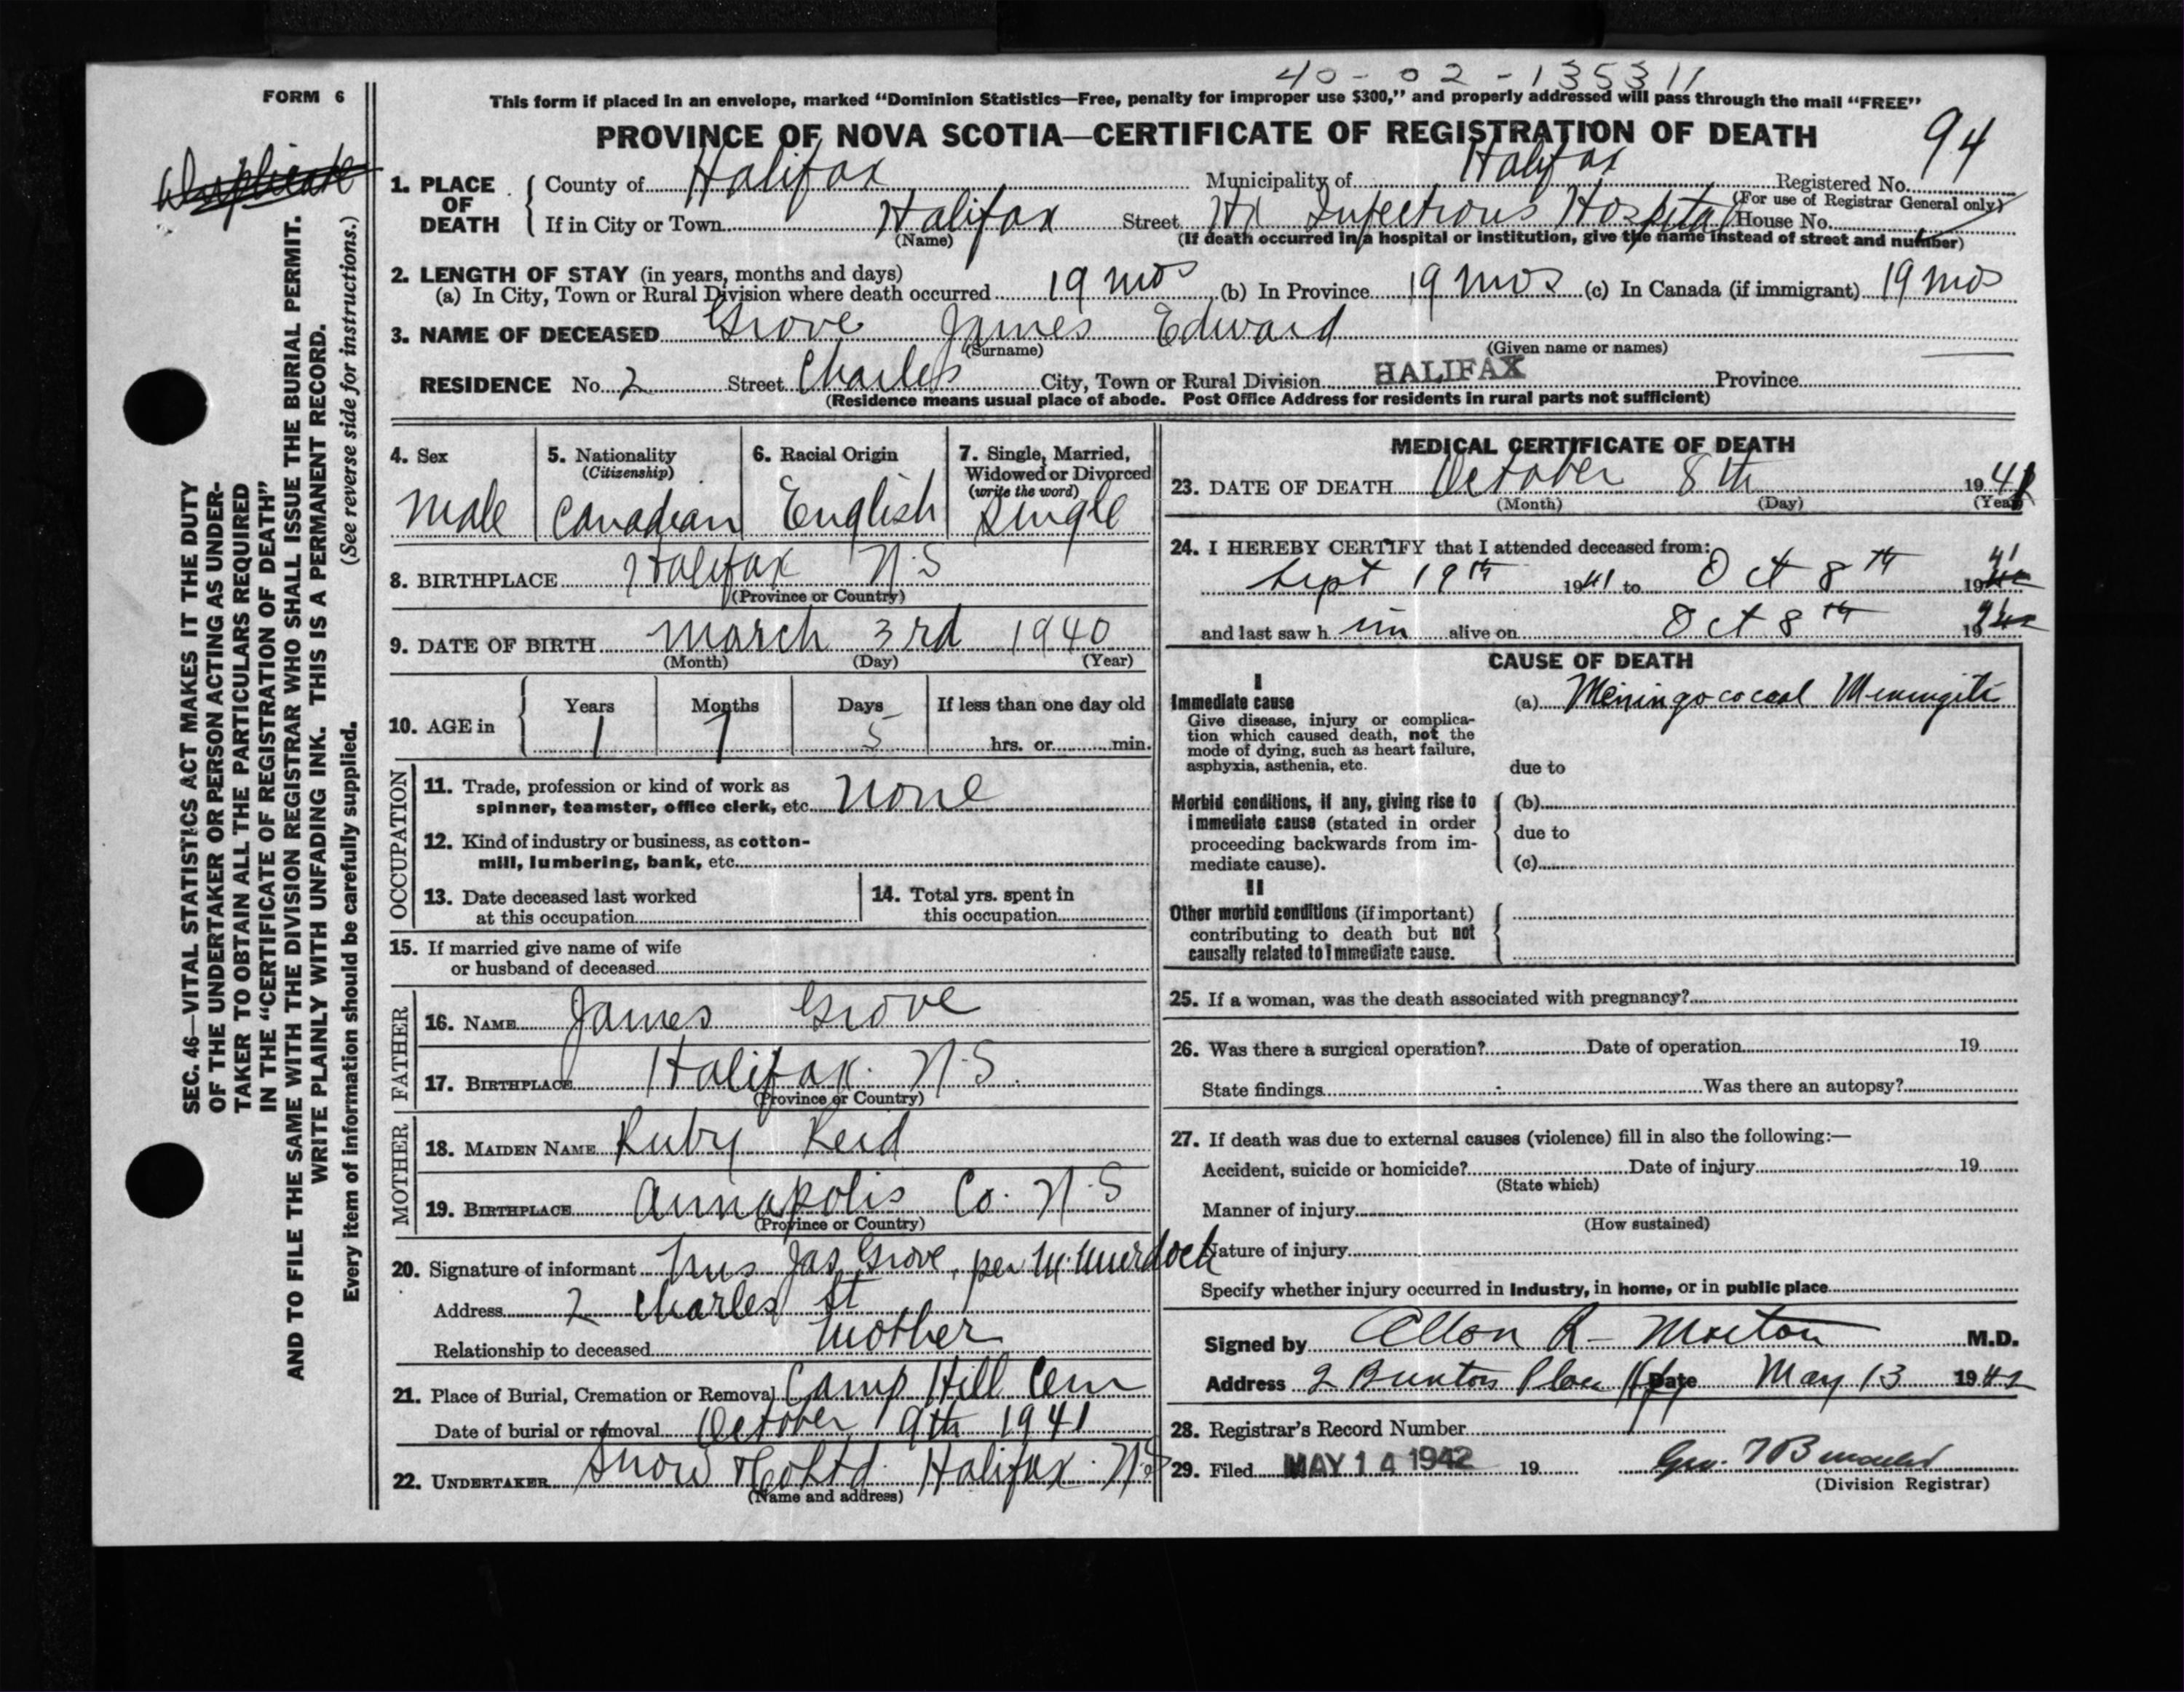 40-02-135311
FORM 6
This form if placed in an envelope, marked "Dominion Statistics—Free, penalty for improper use $300," and properly addressed will pass through the mail "FREE"
PROVINCE OF NOVA SCOTIA—CERTIFICATE OF REGISTRATION OF DEATH
94
Duplicate
SEC. 46—VITAL STATISTICS ACT MAKES IT THE DUTY
OF THE UNDERTAKER OR PERSON ACTING AS UNDER-
TAKER TO OBTAIN ALL THE PARTICULARS REQUIRED
IN THE "CERTIFICATE OF REGISTRATION OF DEATH"
AND TO FILE THE SAME WITH THE DIVISION REGISTRAR WHO SHALL ISSUE THE BURIAL PERMIT.
WRITE PLAINLY WITH UNFADING INK. THIS IS A PERMANENT RECORD.
Every item of information should be carefully supplied. (See reverse side for instructions.)
1. PLACE OF DEATH
County of Halifax Municipality of Halifax Registered No.
(For use of Registrar General only)
If in City or Town Halifax Street Hx Infectious Hospital House No.
(Name) (If death occurred in a hospital or institution, give the name instead of street and number)
2. LENGTH OF STAY (in years, months and days)
(a) In City, Town or Rural Division where death occurred 19 mos (b) In Province 19 mos (c) In Canada (if immigrant) 19 mos
3. NAME OF DECEASED Grove James Edward
(Surname) (Given name or names)
RESIDENCE No. 2 Street Charles City, Town or Rural Division HALIFAX Province
(Residence means usual place of abode. Post Office Address for residents in rural parts not sufficient)
4. Sex
male
5. Nationality
(Citizenship)
Canadian
6. Racial Origin
English
7. Single, Married,
Widowed or Divorced
(write the word)
Single
8. BIRTHPLACE Halifax N.S
(Province or Country)
9. DATE OF BIRTH March 3rd 1940
(Month) (Day) (Year)
10. AGE in
Years Months Days If less than one day old
1 7 5 hrs. or min.
OCCUPATION
11. Trade, profession or kind of work as
spinner, teamster, office clerk, etc. None
12. Kind of industry or business, as cotton-
mill, lumbering, bank, etc.
13. Date deceased last worked
at this occupation
14. Total yrs. spent in
this occupation
15. If married give name of wife
or husband of deceased
FATHER
16. NAME James Grove
17. BIRTHPLACE Halifax. N.S.
(Province or Country)
MOTHER
18. MAIDEN NAME Ruby Reid
19. BIRTHPLACE Annapolis Co. N.S
(Province or Country)
20. Signature of informant Mrs Jas Grove, per M. Murdoch
Address 2 Charles St
Relationship to deceased Mother
21. Place of Burial, Cremation or Removal Camp Hill Cem
Date of burial or removal October 9th 1941
22. UNDERTAKER Snow & Co Ltd. Halifax. N.S
(Name and address)
MEDICAL CERTIFICATE OF DEATH
23. DATE OF DEATH October 8th 1941
(Month) (Day) (Year)
24. I HEREBY CERTIFY that I attended deceased from:
Sept 19th 1941 to Oct 8th 1942 41
and last saw h im alive on Oct 8th 19
CAUSE OF DEATH
I
Immediate cause
Give disease, injury or complica-
tion which caused death, not the
mode of dying, such as heart failure,
asphyxia, asthenia, etc.
(a) Meningococcal Meningitis
due to
Morbid conditions, if any, giving rise to
immediate cause (stated in order
proceeding backwards from im-
mediate cause).
(b)
due to
(c)
II
Other morbid conditions (if important)
contributing to death but not
causally related to immediate cause.
25. If a woman, was the death associated with pregnancy?
26. Was there a surgical operation? Date of operation 19
State findings Was there an autopsy?
27. If death was due to external causes (violence) fill in also the following:—
Accident, suicide or homicide? Date of injury 19
(State which)
Manner of injury
(How sustained)
Nature of injury
Specify whether injury occurred in Industry, in home, or in public place
Signed by Allan R. Morton M.D.
Address 2 Date May 13 1942
28. Registrar's Record Number
29. Filed MAY 14 1942 19
(Division Registrar)